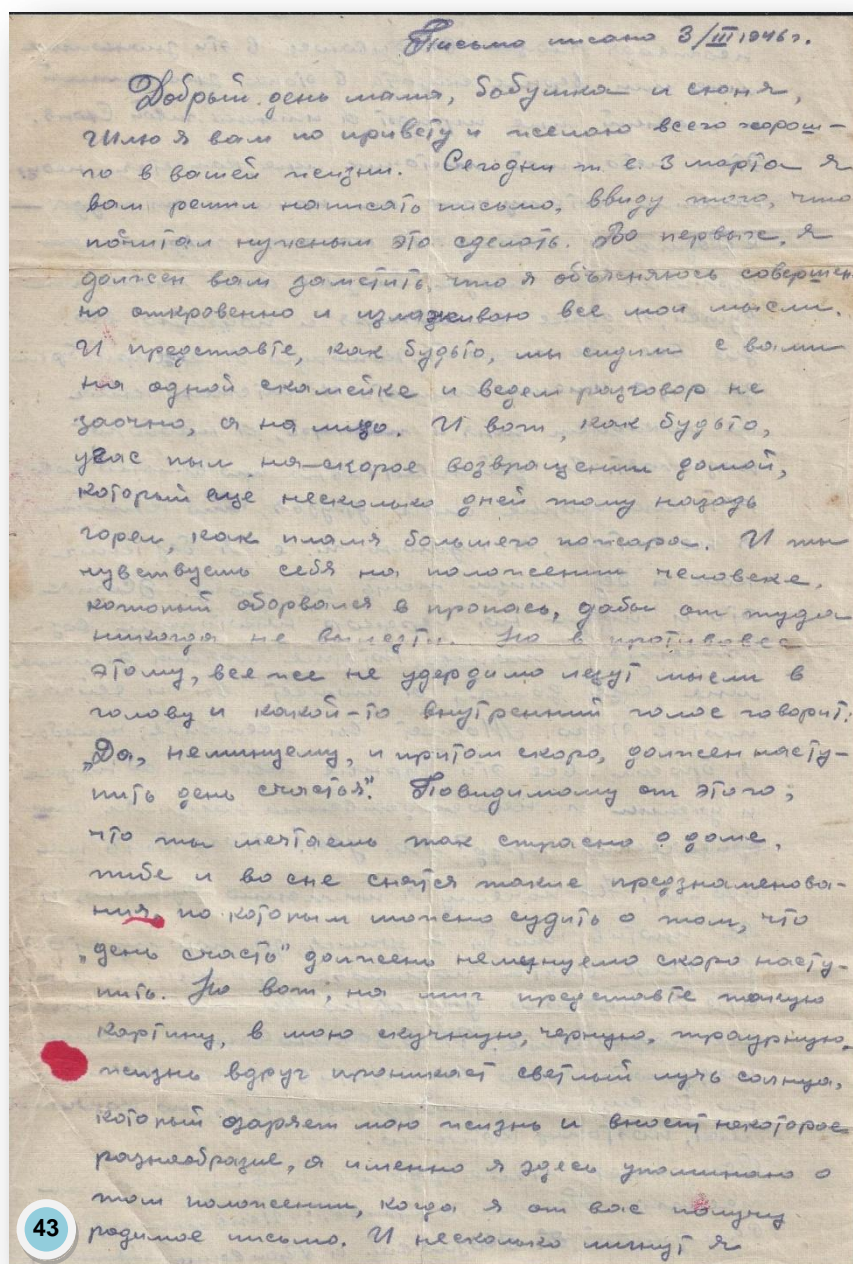 Письмо писано 3/III 1946 г.
Добрый день мама, бабушка и сюня,
Шлю я вам по привету и желаю всего хорош-
го в вашей жизни. Сегодня т. е. 3 марта я
вам решил написать письмо, ввиду того, что
почитал нужным это сделать. Во первых, я
должен вам заметить, что я объясняюсь совершен
но откровенно и излаживаю все мои мысли.
И представте, как будьто, мы сидим с вами
на одной скамейке и ведем разговор не
заочно, а на лицо. И вот, как будьто,
угас пыл на скорое возвращении домой,
который ещё несколько дней тому назадь
горел, как пламя большего пожара. И ты
чувствуешь себя на положении человеке,
который оборвался в пропась, дабы от туда
никогда не вылезти. Но в противовес
этому, все же не удердимо лезут мысли в
голову и какой-то внутренний голос говорит:
„Да, неминуему, и притом скоро, должен насту-
пить день счастья". Повидимому от этого,
что ты мечтаешь так страсно о доме,
тибе и во сне снятся такие предзнаменова-
ния, по которым можено судить о том, что
„день счасть" должен неминуемо скоро насту-
пить. Но вот, на миг представте такую
картину, в мою скучную, черную, траурную,
жизнь вдруг проникает светлый лучь солнца,
который озаряет мою жизнь и вносит некоторое
разнообразие, а именно я здесь упоминаю о
том положении, когда я от вас получу
родимое письмо. И несколько минут я
43